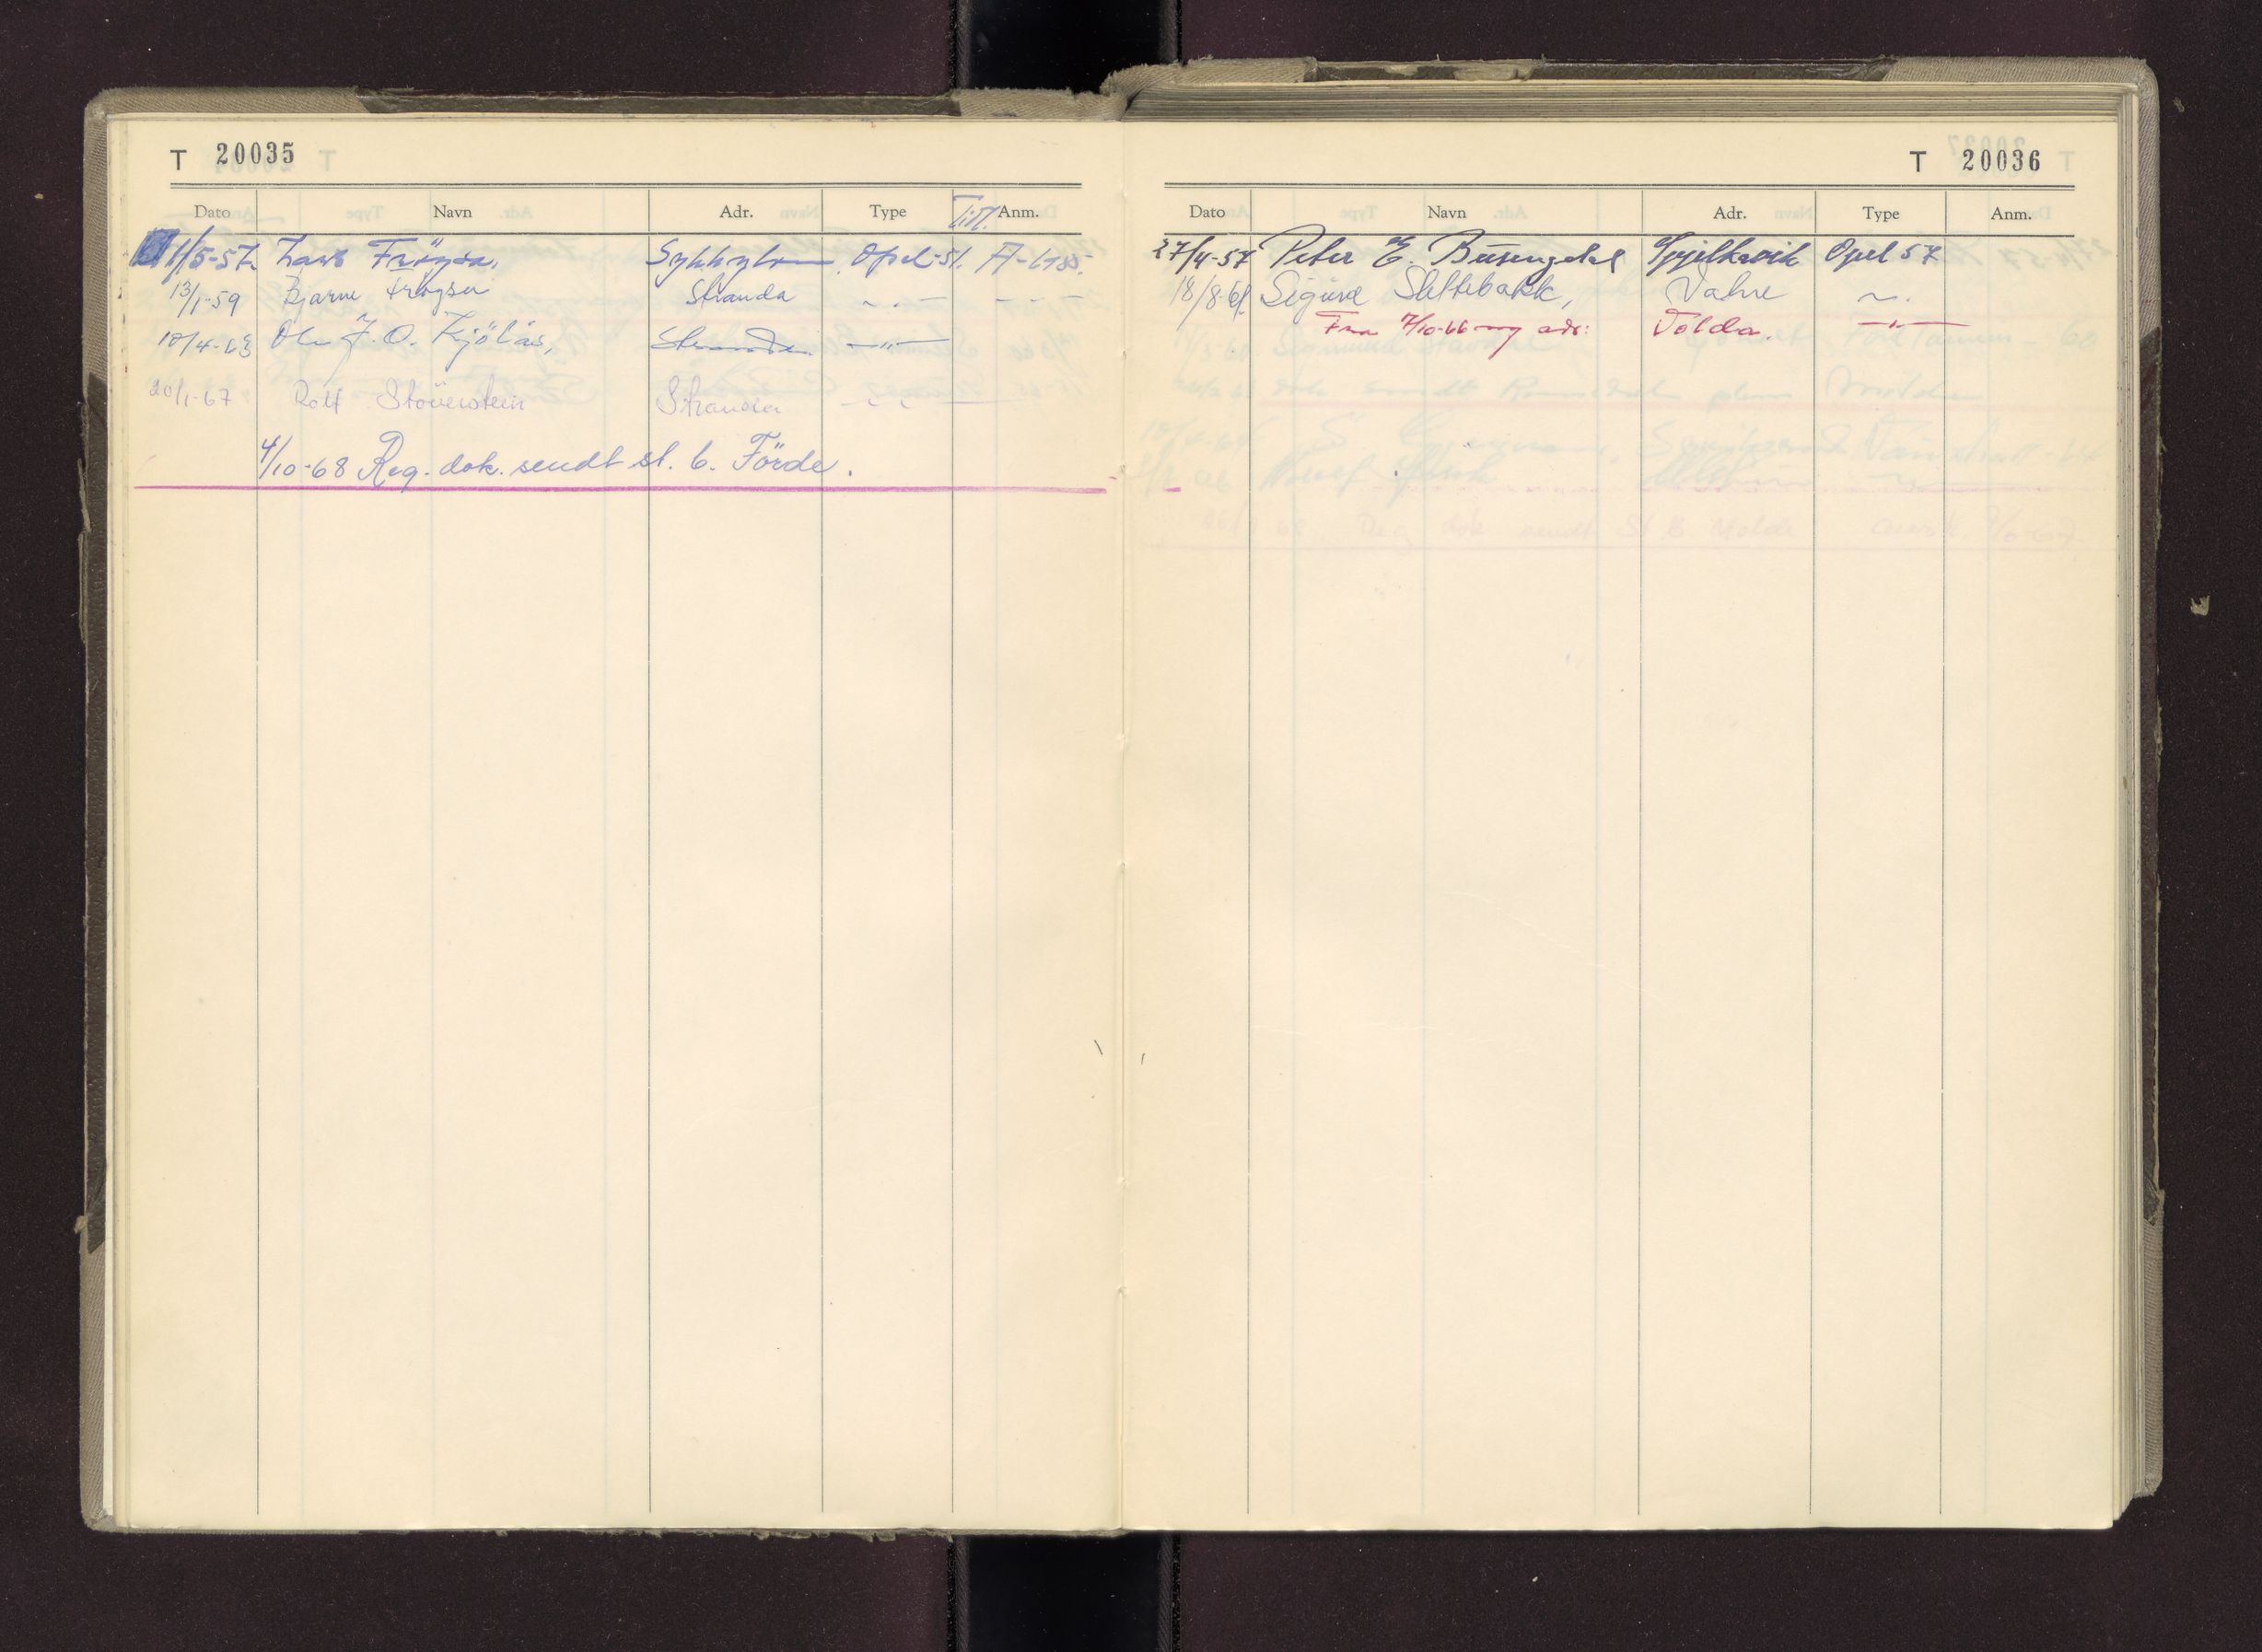 T 20035
Dato Navn Adr. Type Tidl. Anm.
1/5-57. Lars Fröysa, Sykkylven Opel-51. A-6785.
13/1-59 Bjarne Frøysa Stranda — " — — " —
18/4-63 Ole J. O. Kjölås, Stranda — " —
20/1-67 Rolf Støverstein Stranda — " —
4/10-68 Reg. dok. sendt st. b. Förde.
T 20036
Dato Navn Adr. Type Anm.
27/4-57 Peter E. Busengdal Spjelkavik Opel 57
18/8-61. Sigurd Slettebakk, Vatne — " —
Fra 7/10-66 ny adr: Volda. — " —